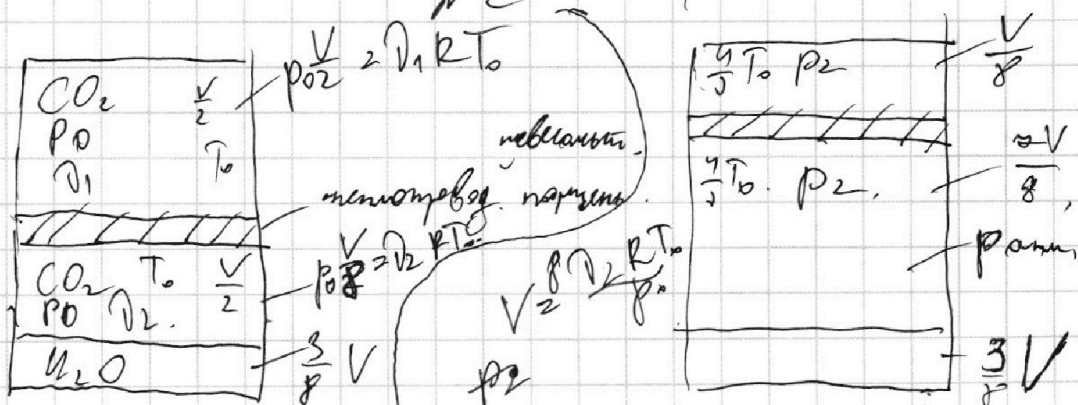 CO₂ V/2
P0
ν₁ T₀
p₀ V/2 = ν₁ R T₀
невесомый
теплопровод. поршень.
CO₂ T₀ V/2
P0 ν₂.
p₀ V/8 = ν₂ R T₀
H₂O
3/8 V
V = 8 ν₂ R T₀/p₀
p2
T₀ p2
V/8
T₀. p2.
V/8,
3/8 V